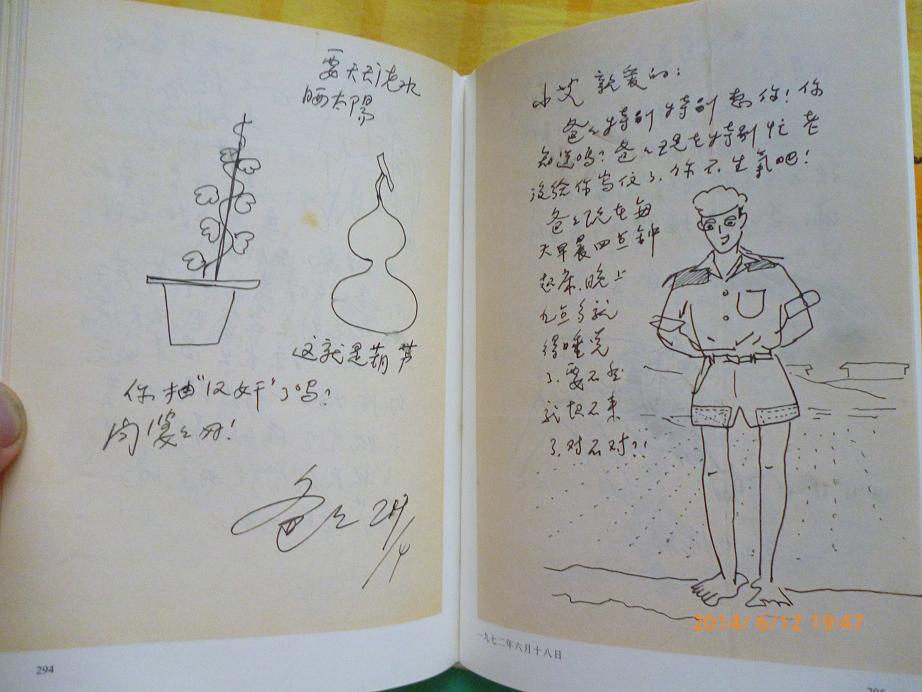 要天天浇水
晒太陽
这就是葫芦
你抽"汉奸"了吗？
问婆々好！
爸々 28/4
294
小艾 親爱的：
爸々特别特别想你！你
知道吗？爸々现在特别忙老
没给你写信了，你不生氣吧！
爸々现在每
天早晨四点钟
起床，晚上
九点多就
得睡觉
了，要不然
就起不来
了，对不对？！
一九七二年六月十八日
2014/ 6/12 19:47